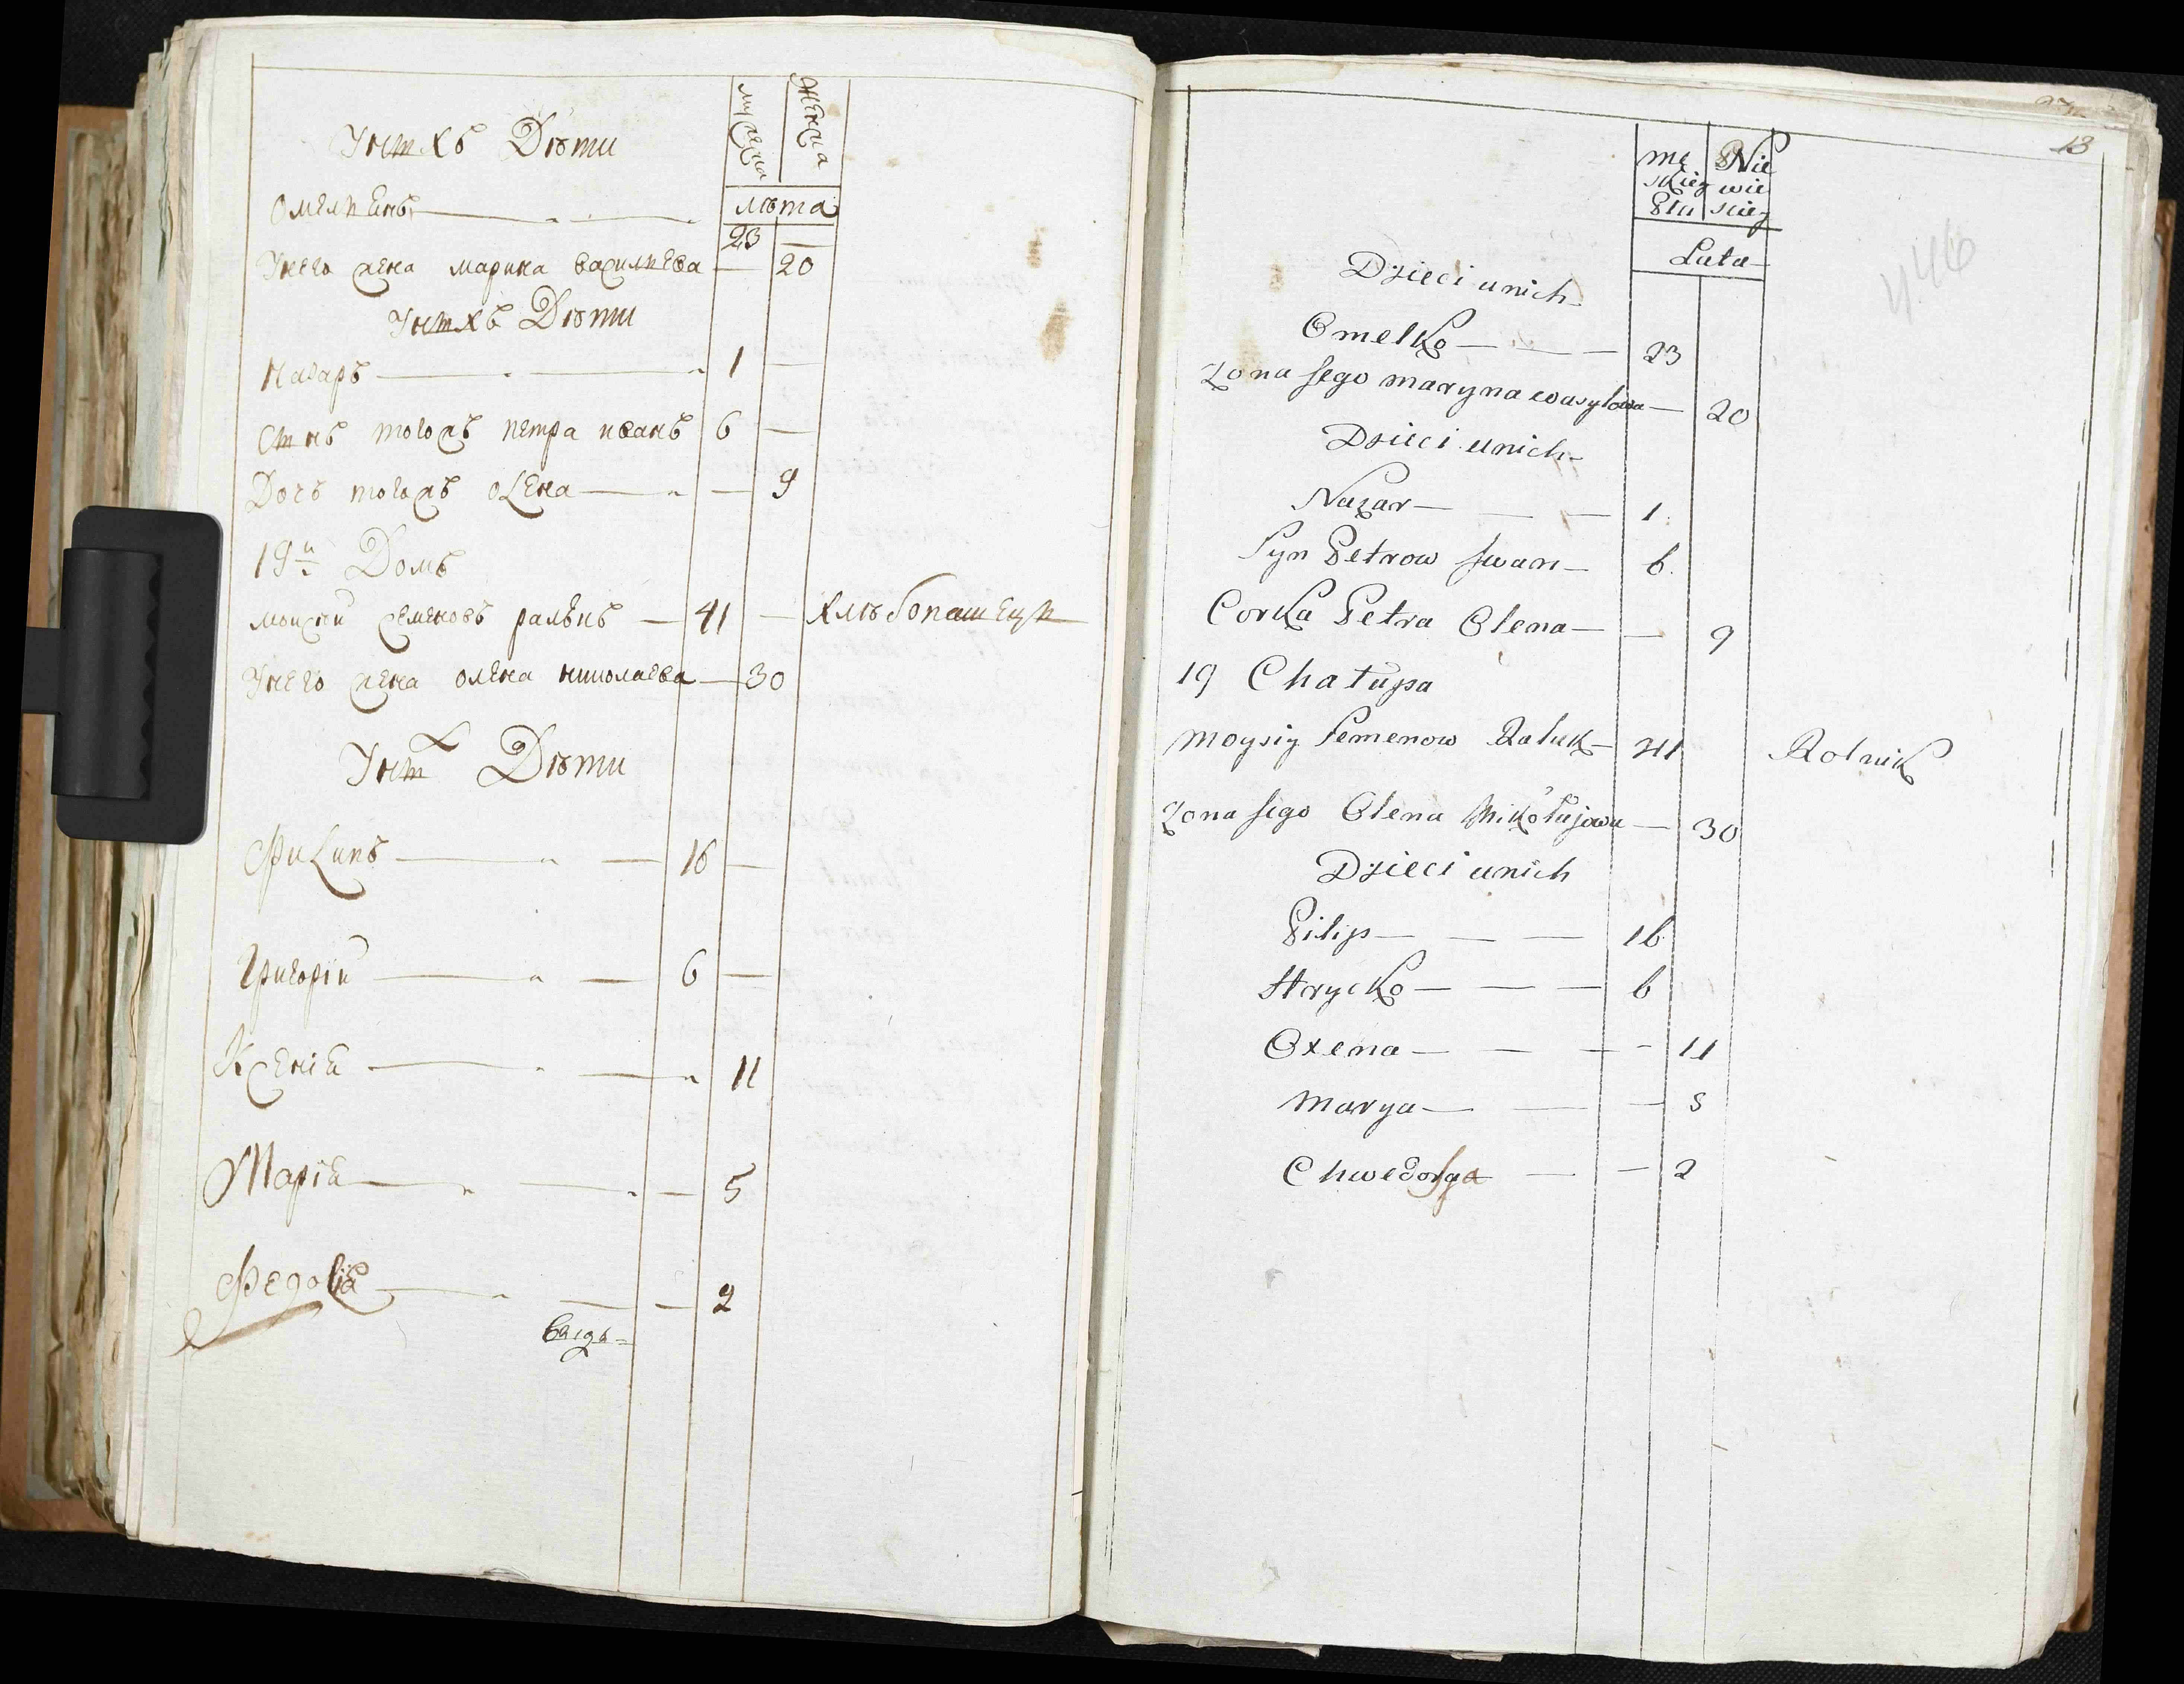 мужеска
женска
Унихъ Дѣти
лѣта
Омелиянъ — — 23 —
Унего жена марина василиева — 20
Унихъ Дѣти
Назаръ — — 1 —
Снъ тогожъ петра иванъ 6 —
Дочь тогожъ оLена — — 9
19й Домъ
моисей семеновъ ралѣкъ — 41 — хлѣбопашецъ
Унего жена олена николаева — 30
Унихъ Дѣти
Филипъ — — 16 —
Григорій — — 6 —
Ксенія — — 11
Марія — — — 5
Федосія — — — 2
13
446
mę Nie
skiey wie
Płu skiey
Lata
Dzieci unich
Omelko — — — 23
Zona Jego maryna wasylowa — 20
Dzieci unich
Nazar — — — 1.
Syn Petrow Jwan — 6.
Corka Petra Olena — — 9
19 Chałupa
Moysiy Semenow Raluk — 41 Rolnik
Zona Jego Olena Mikołajowa — 30
Dzieci unich
Pilip — — — 16
Hrycko — — — 6
Oxena — — — - 11
Marya — — — 5
Chwedosya — — 2